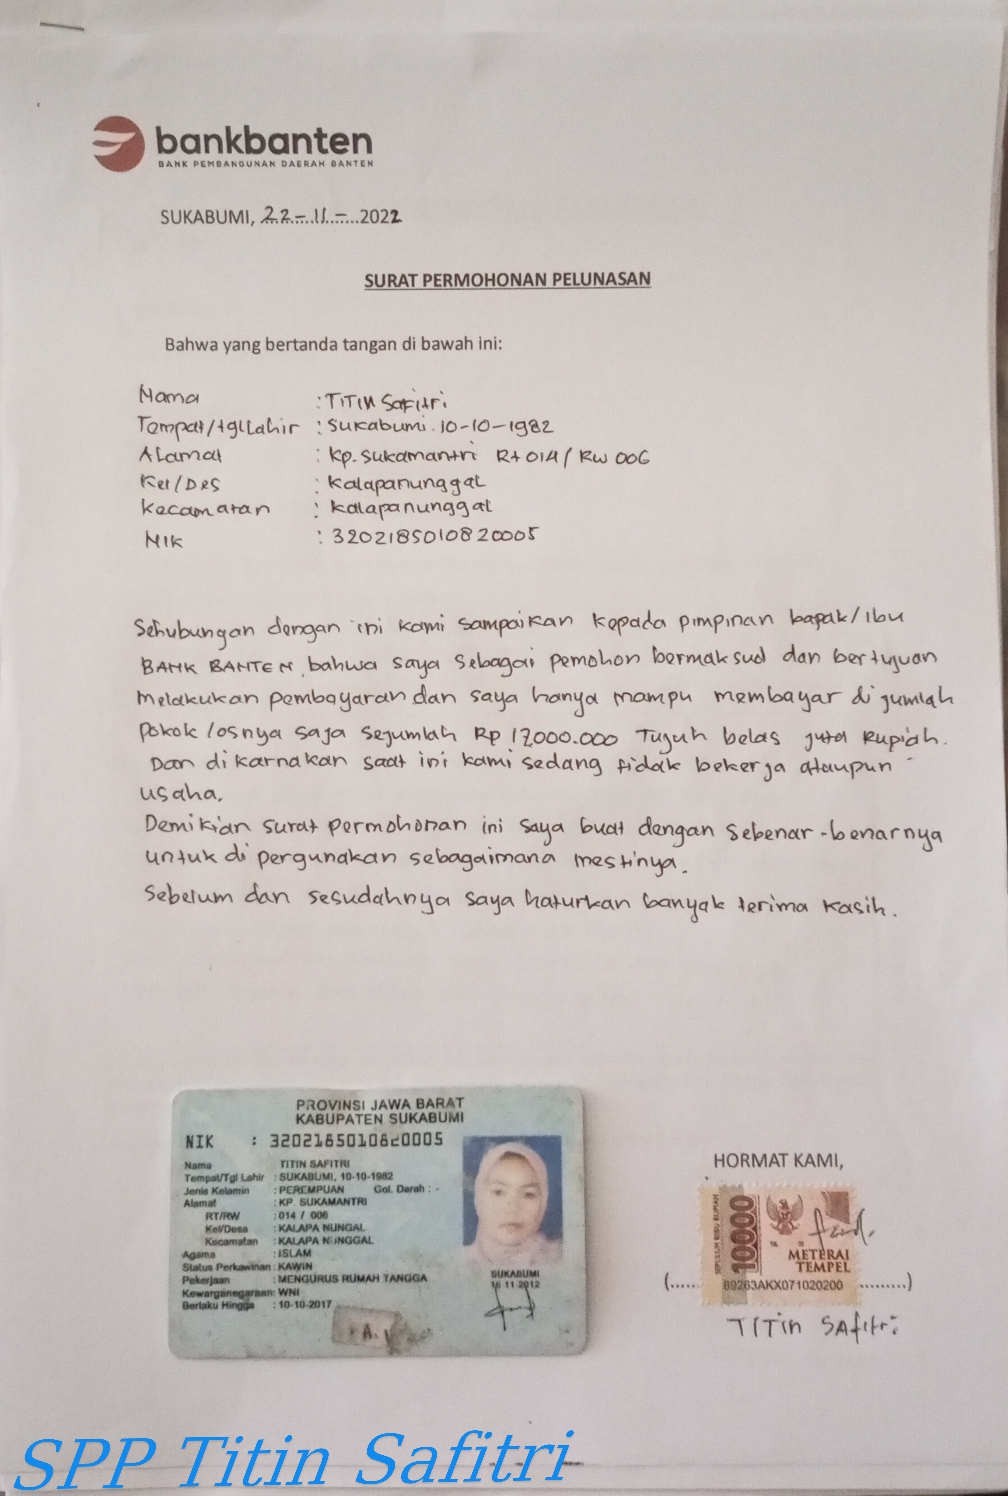 bankbanten
BANK PEMBANGUNAN DAERAH BANTEN
SUKABUMI, 22-11-2022
SURAT PERMOHONAN PELUNASAN
Bahwa yang bertanda tangan di bawah ini:
Nama : TITIN Safitri
Tempat/tgl Lahir : Sukabumi. 10-10-1982
Alamat : Kp. Sukamantri Rt 014 / RW 006
Kel/Des : Kalapanunggal
Kecamatan : Kalapanunggal
NIK : 3202185010820005
Sehubungan dengan ini kami sampaikan kepada pimpinan bapak/Ibu
BANK BANTEN, bahwa saya sebagai pemohon bermaksud dan bertujuan
Melakukan pembayaran dan saya hanya mampu membayar di jumlah
pokok/osnya saja sejumlah Rp 17000.000 Tujuh belas juta Rupiah.
Dan dikarnakan saat ini kami sedang tidak bekerja ataupun
usaha.
Demikian surat permohonan ini saya buat dengan sebenar-benarnya
untuk di pergunakan sebagaimana mestinya.
Sebelum dan sesudahnya saya haturkan banyak terima kasih.
PROVINSI JAWA BARAT
KABUPATEN SUKABUMI
NIK : 3202185010820005
Nama TITIN SAFITRI
Tempat/Tgl Lahir : SUKABUMI, 10-10-1982
Jenis Kelamin : PEREMPUAN Gol. Darah : -
Alamat : KP. SUKAMANTRI
RT/RW : 014 / 006
Kel/Desa : KALAPA NUNGAL
Kecamatan : KALAPA NUNGGAL
Agama : ISLAM
Status Perkawinan : KAWIN
Pekerjaan : MENGURUS RUMAH TANGGA
Kewarganegaraan: WNI
Berlaku Hingga : 10-10-2017
SUKABUMI
16 11-2012
HORMAT KAMI,
SEPULUH RIBU RUPIAH
10000
METERAI
TEMPEL
89263AKX071020200
(...... .........)
TITIN SAfitri
SPP Titin Safitri